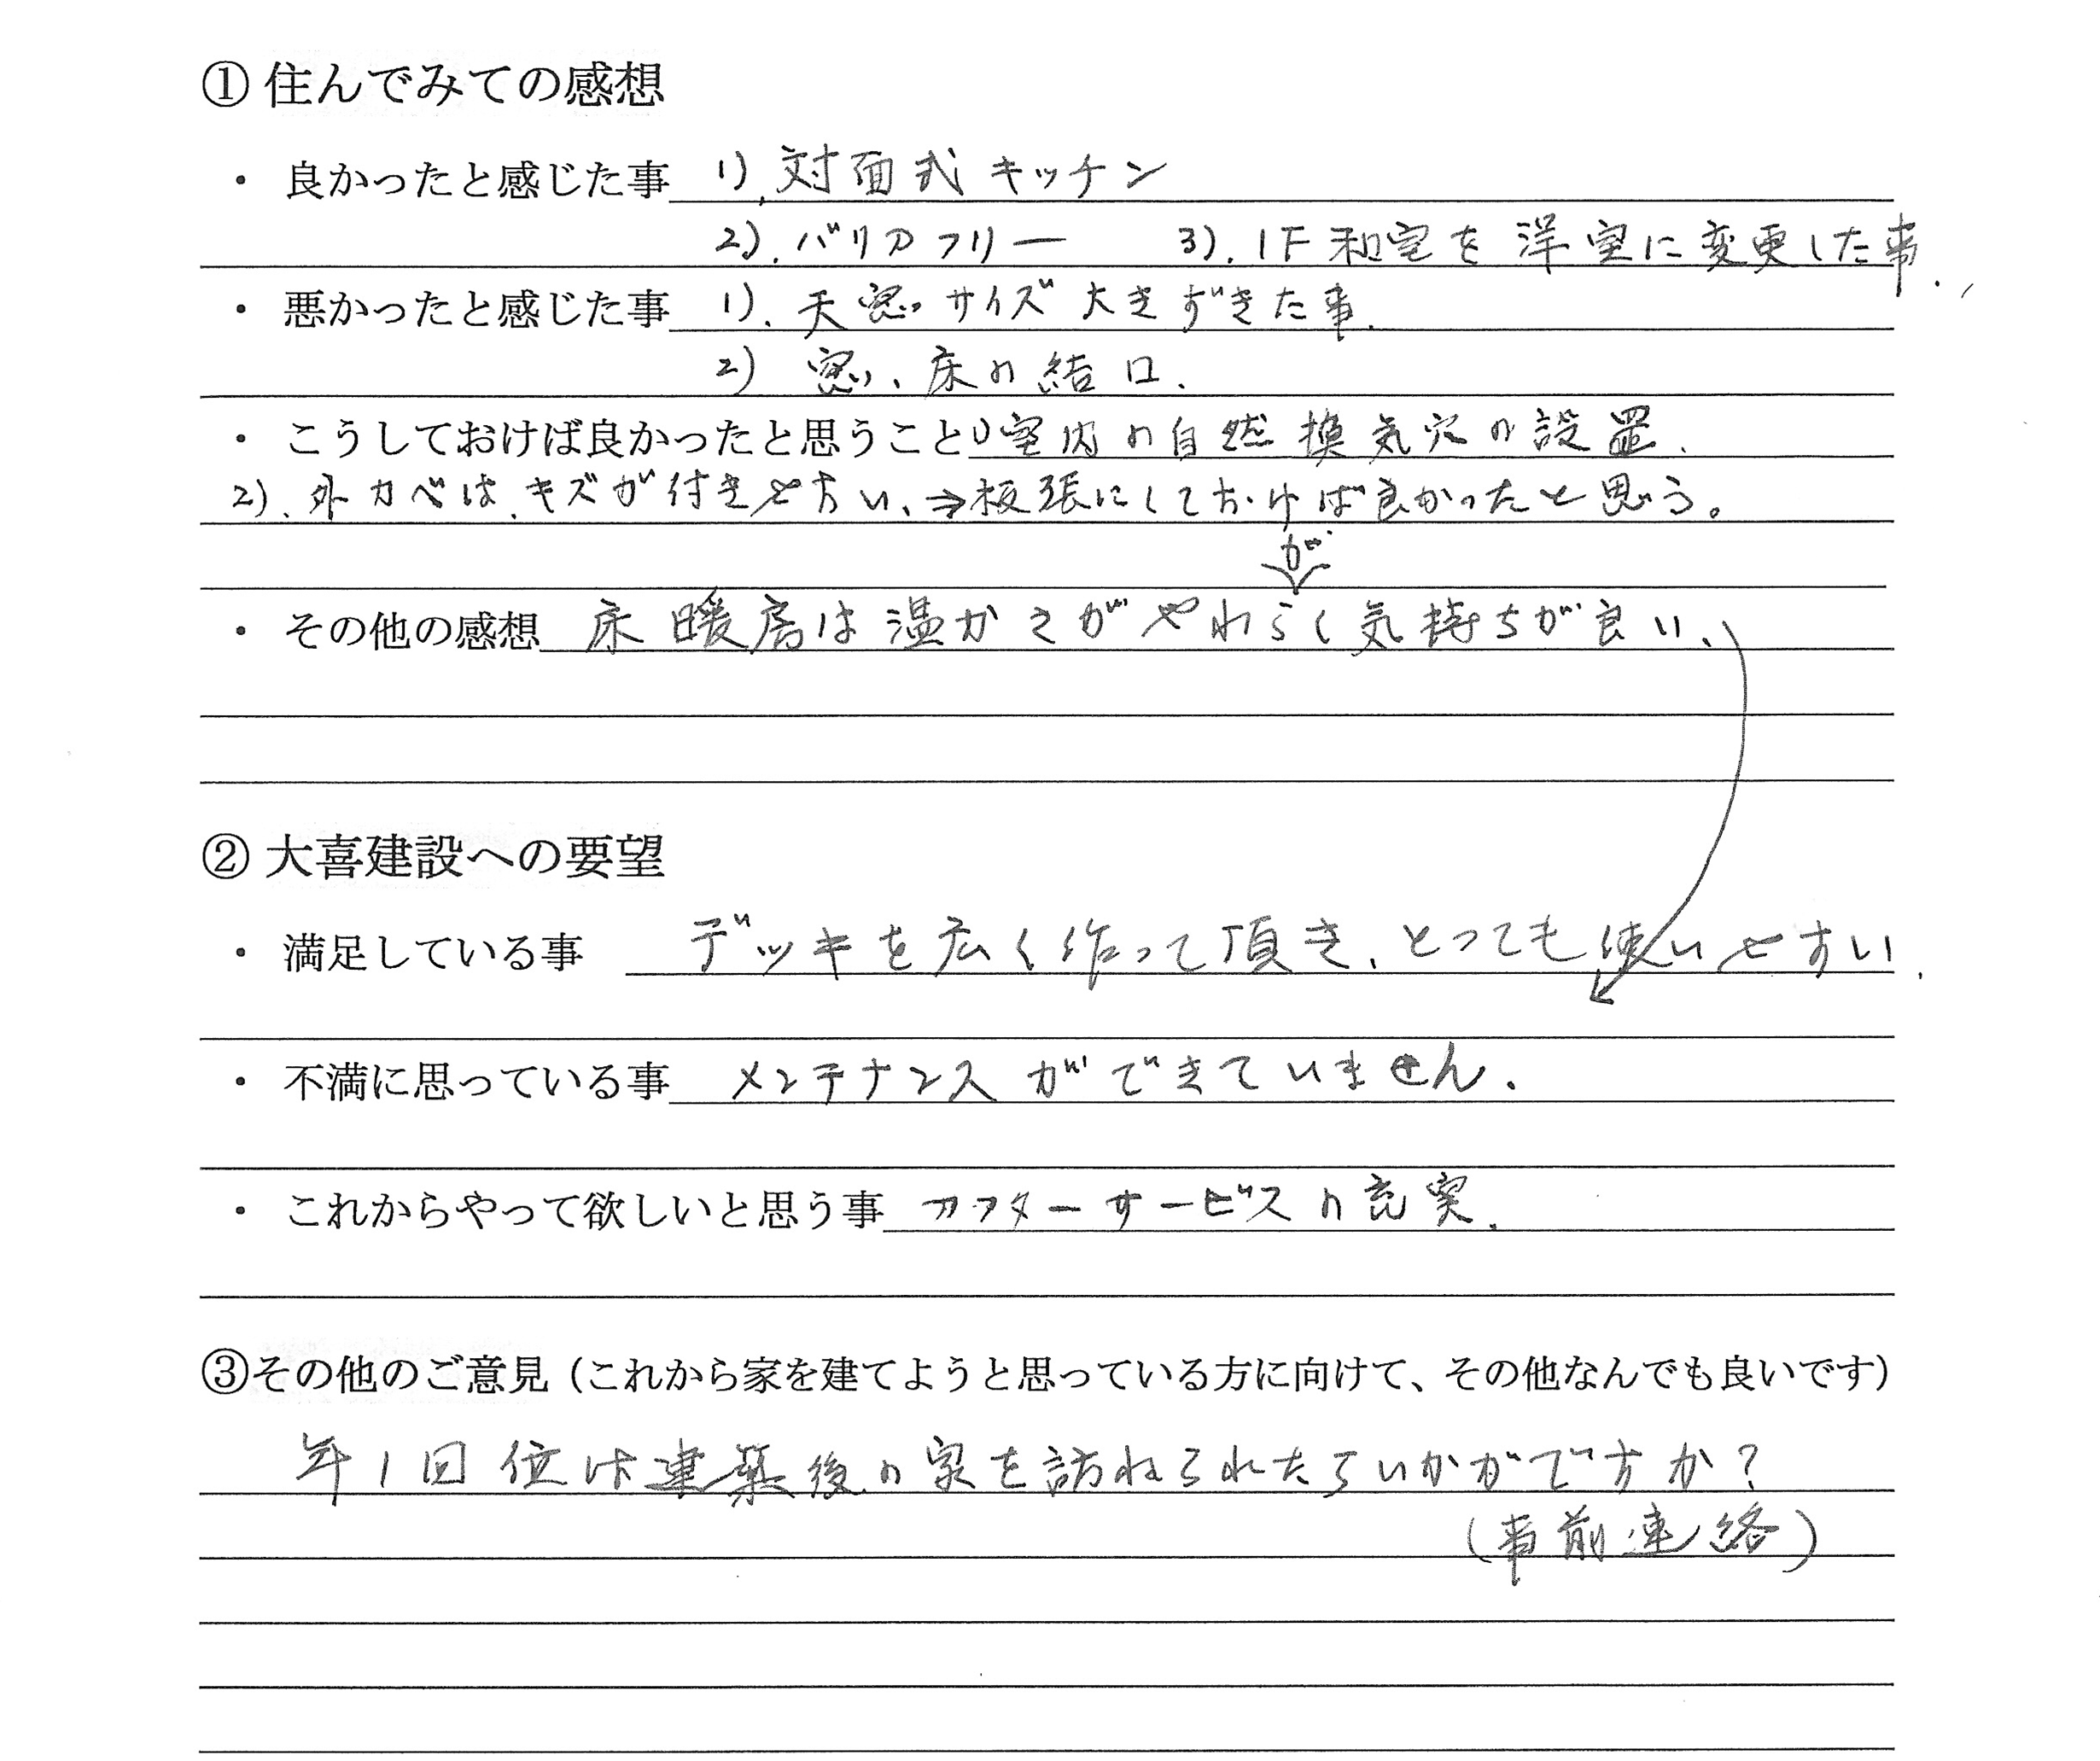 ① 住んでみての感想
・ 良かったと感じた事 1). 対面式キッチン
2). バリアフリー 3). 1F和室を洋室に変更した事.
・ 悪かったと感じた事 1). 天窓サイズ大きすぎた事.
2) 窓、床の結ロ.
・ こうしておけば良かったと思うこと 1)室内の自然換気穴の設置.
2). 外カベは、キズが付きやすい、⇒板張にしておけば良かったと思う。
が
・ その他の感想 床暖房は温かさがやわらく気持ちが良い、
② 大喜建設への要望
・ 満足している事 デッキを広く作って頂き、とっても使いやすい.
・ 不満に思っている事 メンテナンスができていません.
・ これからやって欲しいと思う事 アフターサービスの充実.
③その他のご意見（これから家を建てようと思っている方に向けて、その他なんでも良いです）
年1回位は建築後の家を訪ねられたらいかがですか？
(事前連絡)